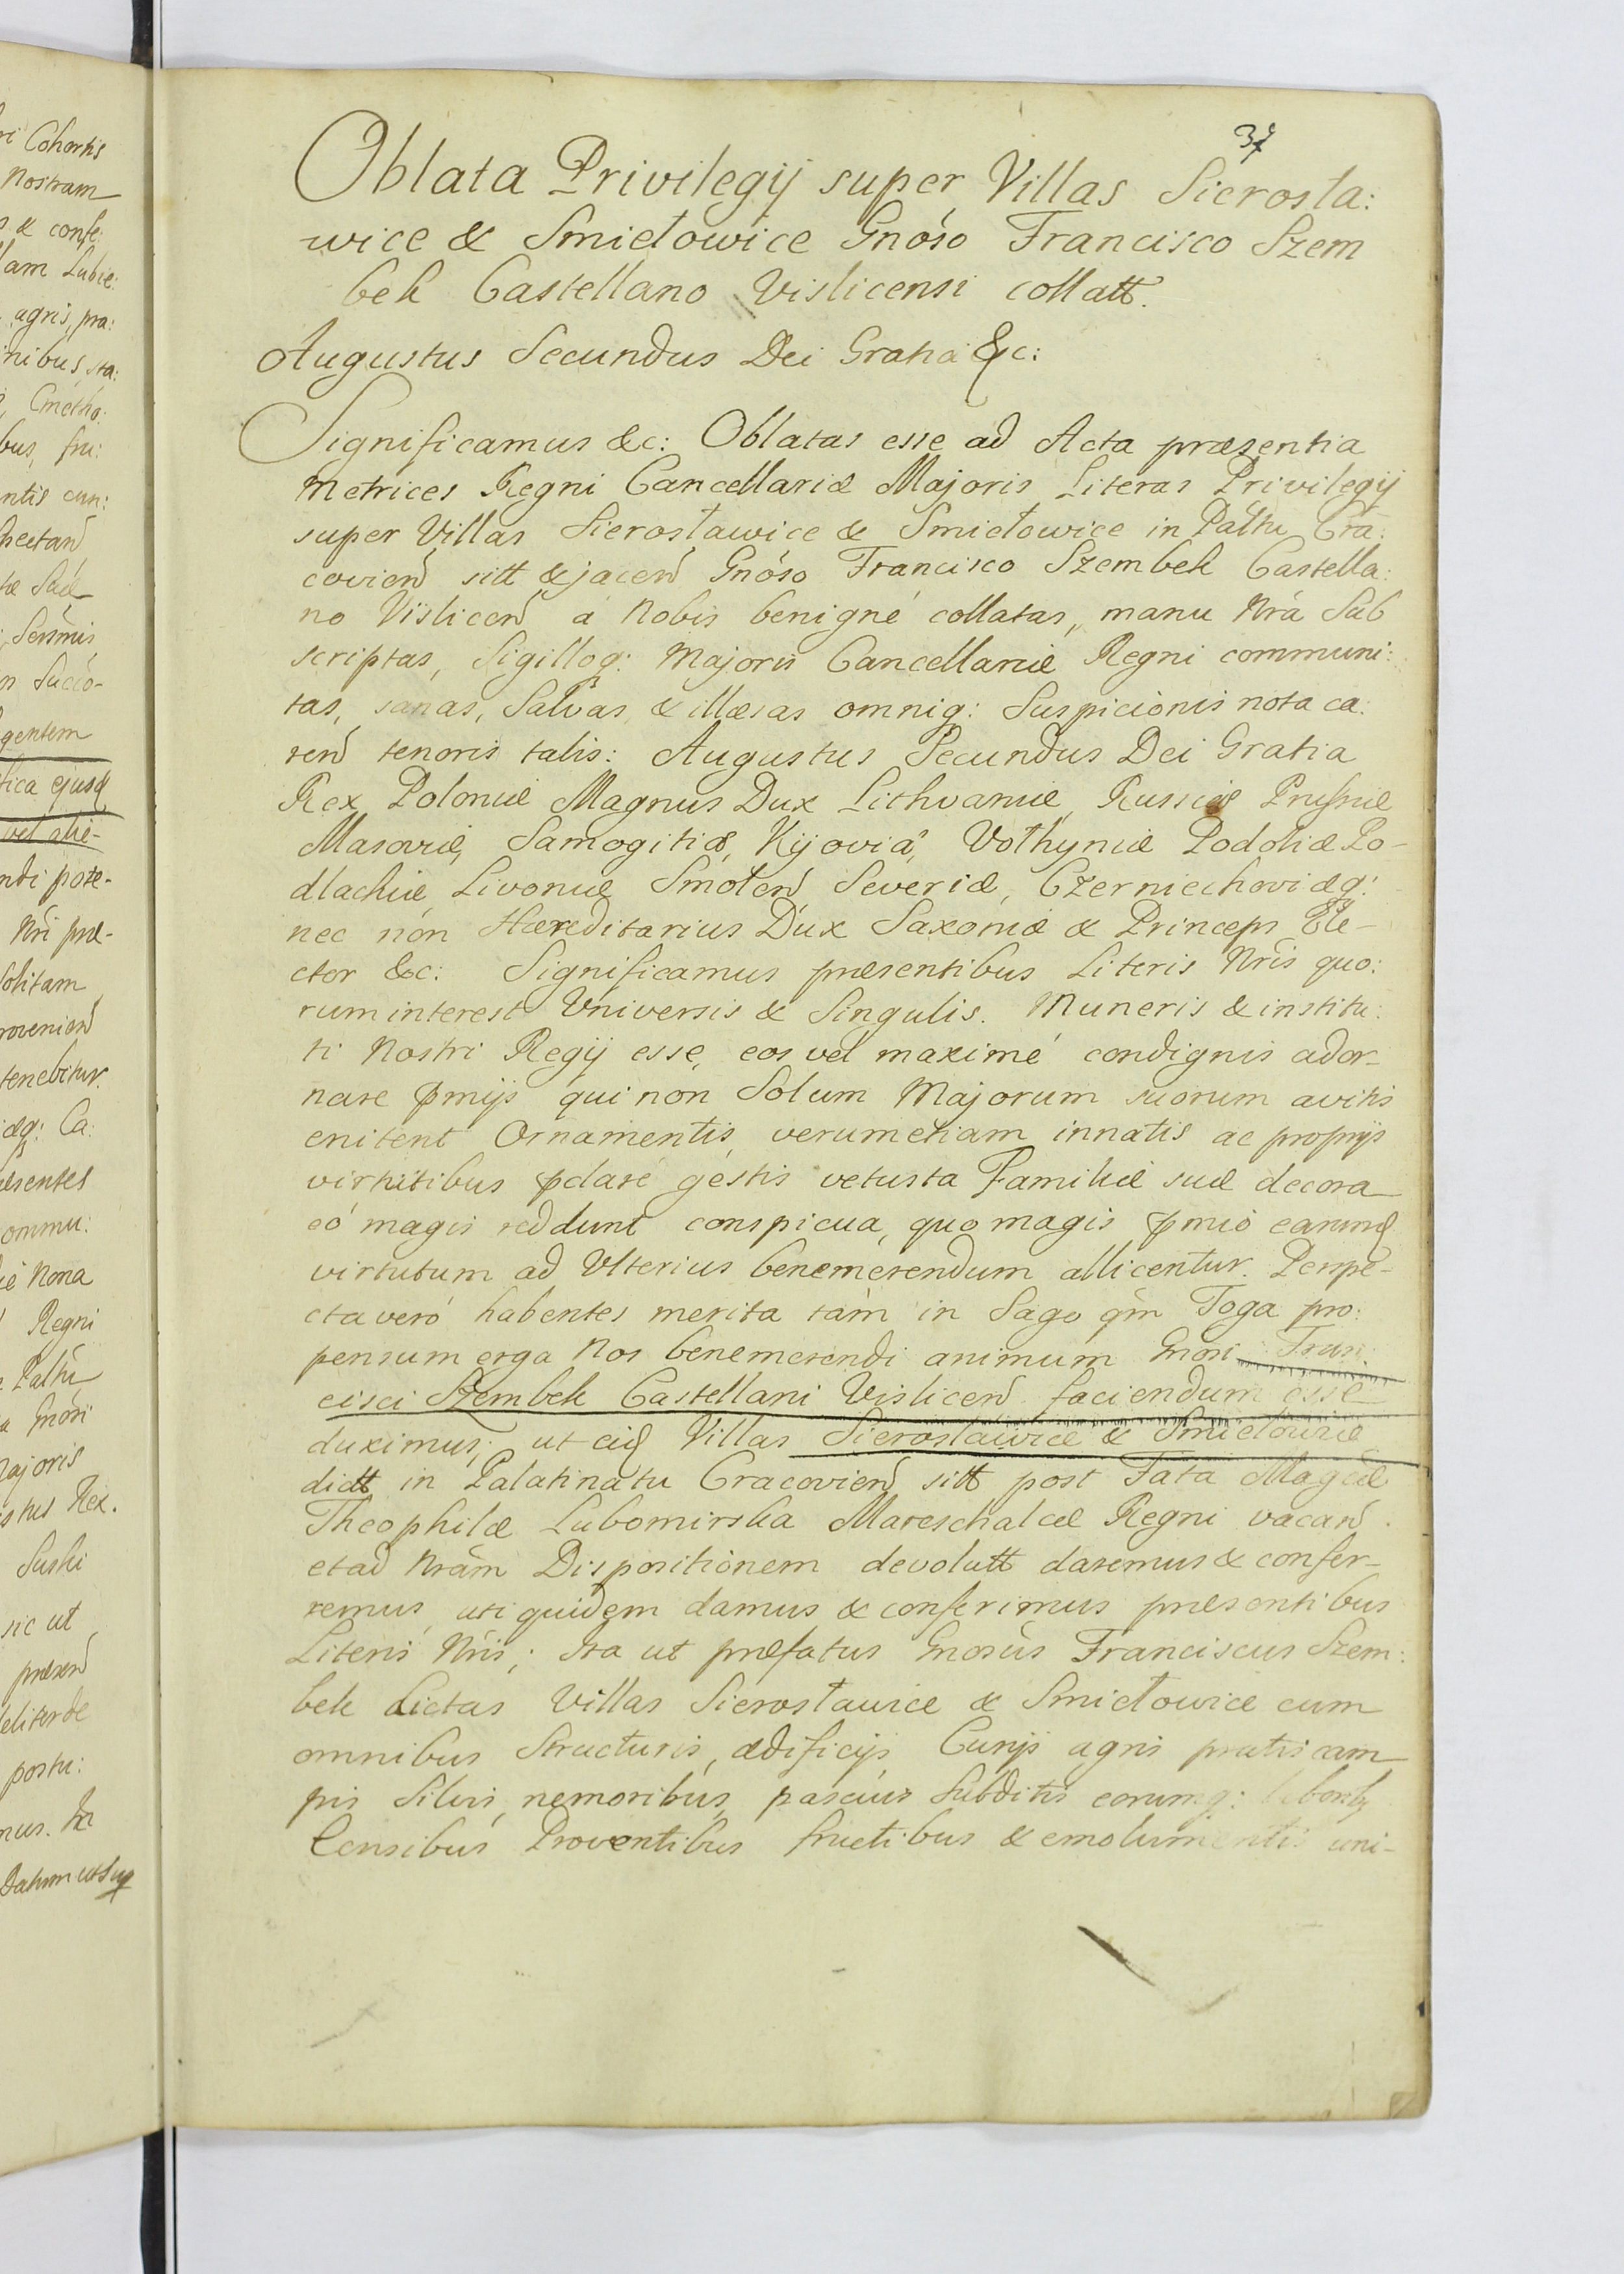 37
Oblata Privilegij super Villas Sierosła:
wice & Smiełowice Gnóso Francisco Szem
bek Castellano Vislicensi collatt.
Augustus Secundus Dei Gratia &c:
Significamus &c: Oblatas esse ad Acta præsentia
Metrices Regni Cancellariæ Majoris Literas Privilegij
super Villas Sierosławice & Smiełowice in Palttu Cra:
covien sitt & jacen Gnóso Francisco Szembek Castella:
no Vislicen a Nobis benigné collatas, manu Nrá Sub
scriptas, Sigilloq: Majoris Cancellariæ Regni communi:
tas, sanas, Salvas, & illæsas omniq: Suspicionis nota ca:
ren tenoris talis: Augustus Secundus Dei Gratia
Rex Poloniæ Magnus Dux Lithvaniæ, Russiæ Prussiæ
Masoviæ, Samogitiæ, Kijoviæ, Vołhyniæ Podoliæ Po-
dlachiæ, Livoniæ Smolen Severiæ, Czerniechoviæq:
nec non Hæreditarius Dux Saxoniæ & Princeps Ele-
ctor &c: Significamus præsentibus Literis Nris quo:
rum interest Universis & Singulis. Muneris & institu:
ti Nostri Regij esse, eos vel maximé condignis ador-
nare pmijs qui non Solum Majorum suorum avitis
enitent Ornamentis, verumetiam innatis ac proprijs
virtutibus pclaré gestis vetusta Familiæ suæ decora
eó magis reddunt conspicua, quo magis pmió earumd
virtutum ad Ulterius benemerendum allicentur. Perspe-
cta veró habentes merita tàm in Sago qm Toga pro:
pensum erga Nos benemerendi animum Gnosi Fran:
cisci Szembek Castellani Vislicen faciendum esse
duximus; ut eid Villas Sierosławice & Smiełowice
dictt in Palatinatu Cracovien sitt post Fata Magcæ
Theophilæ Lubomirska Mareschalcæ Regni vacan
et ad Nràm Dispositionem devolutt daremus & confer-
remus, uti quidem damus & conferimus præsentibus
Literis Nris; Ita ut præfatus Gnosus Franciscus Szem:
bek dictas Villas Sierosławice & Smiełowice cum
omnibus Structuris, ædificijs, Curijs agris pratis cam
pis Silvis, nemoribus, pascuis Subditis eorumq: laborib
Censibus Proventibus fructibus & emolumentis uni-